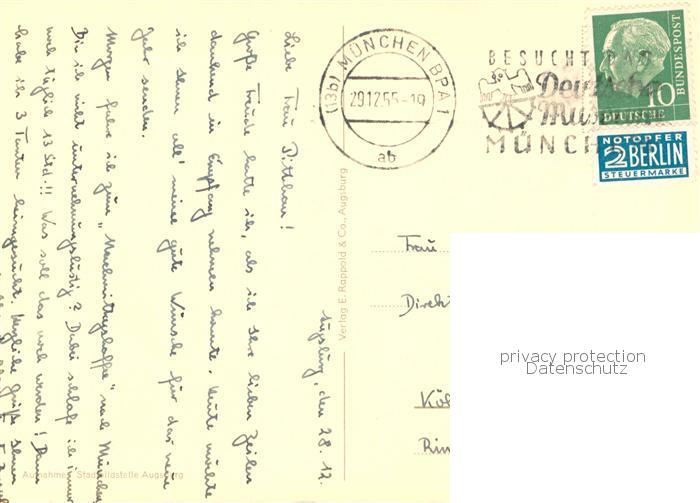 Augsburg, den 28. 12.
Liebe Frau Dittmar!
Große Freude hatte ich, als ich Ihre lieben Zeilen
dankend in Empfang nehmen konnte. Heute möchte
ich Ihnen all' meine gute Wünsche für das neue
Jahr senden.
Morgen fahre ich zum "Nachmittagskaffee" nach München
Bin ich nicht unternehmungslustig? Dabei schlafe ich immer
noch täglich 13 Std.!! Was soll das noch werden! Dann
habe ich 3 Tanten heimgesucht. Herzliche Grüße Ihnen
Aufnahmen Stadtbildstelle Augsburg
Verlag E. Rappold & Co., Augsburg
(13b) MÜNCHEN BPA 1
29.12.55-19
ab
BESUCHT DAS
Deutsche
Museum
MÜNCHEN
DEUTSCHE
BUNDESPOST
10
NOTOPFER
2 BERLIN
STEUERMARKE
Frau
Direkt
Köl
Rin
privacy protection
Datenschutz